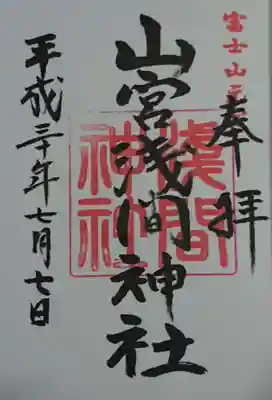 富士山元
奉拝
山宮浅間神社
浅間
神社
平成三十年七月七日